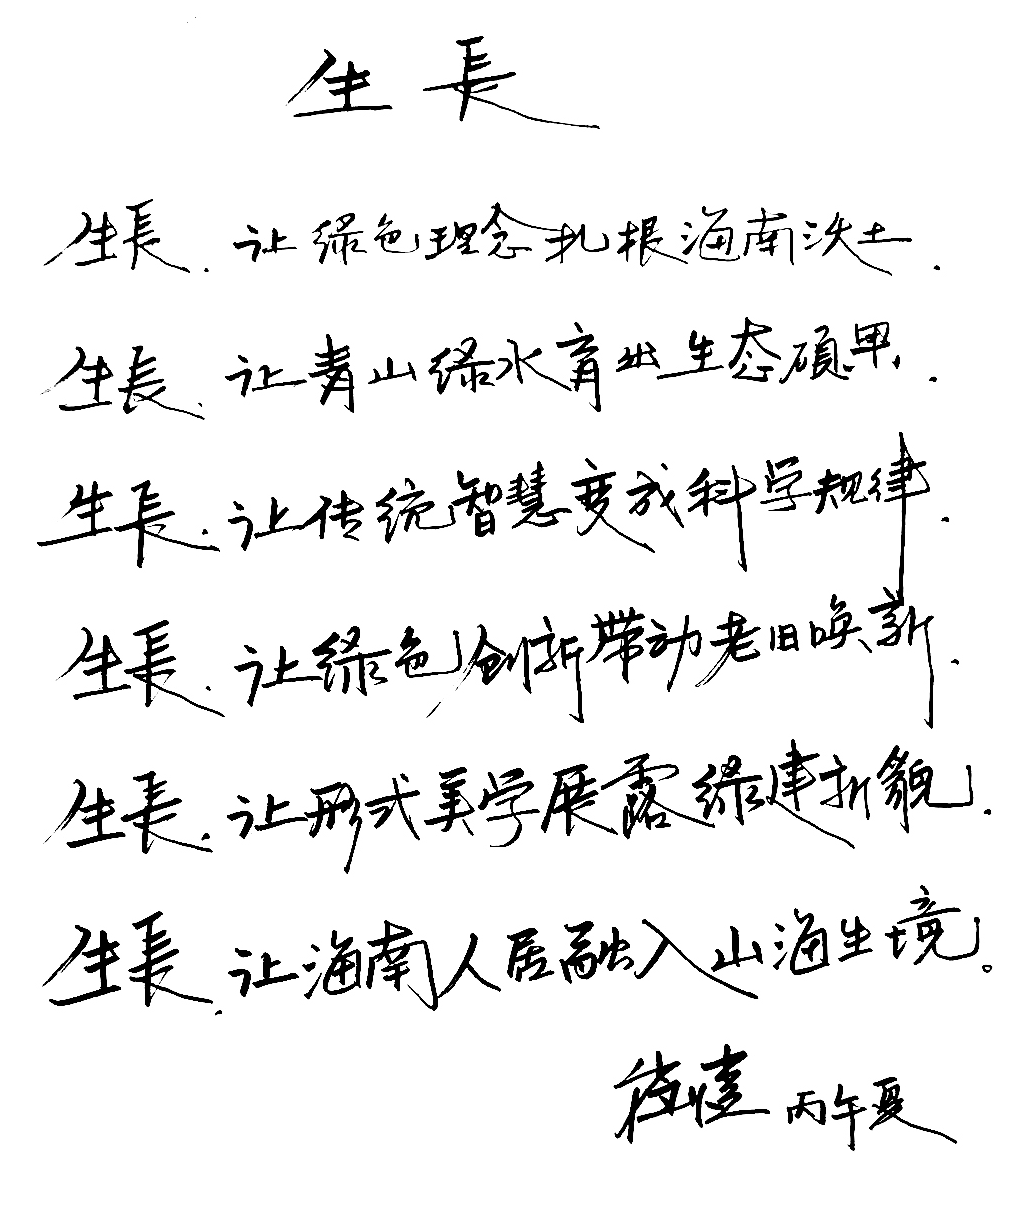 生長
生長，让绿色理念扎根海南沃土，
生長，让青山绿水育出生态硕果，
生長，让传统智慧变成科学规律，
生長，让绿色创新带动老旧唤新，
生長，让形式美学展露绿建新貌，
生長，让海南人居融入山海生境。
丙午夏